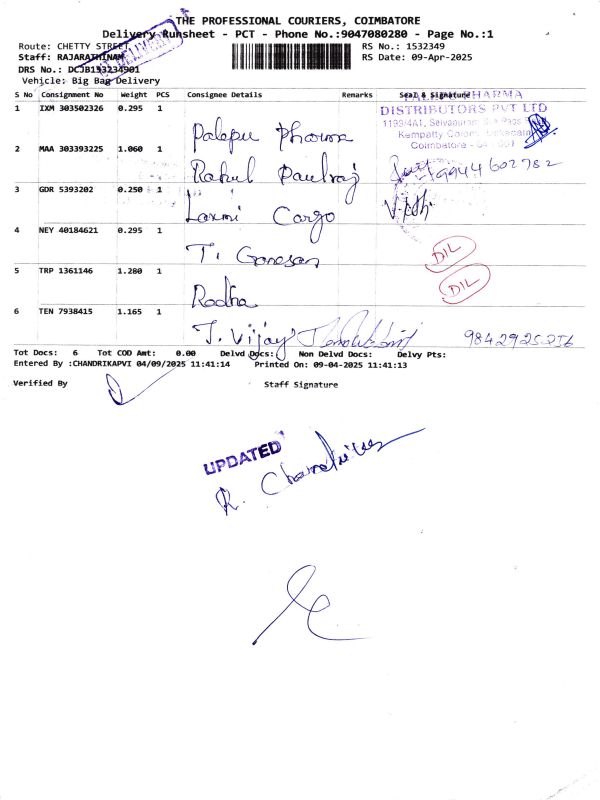 THE PROFESSIONAL COURIERS, COIMBATORE
Delivery Runsheet - PCT - Phone No.:9047080280 - Page No.:1
Route: CHETTY STREET RS No.: 1532349
Staff: RAJARATHINAM RS Date: 09-Apr-2025
DRS No.: DCJB153234901
Vehicle: Big Bag Delivery
DELIVERY
S No Consignment No Weight PCS Consignee Details Remarks Seal & Signature
PHARMA
DISTRIBUTORS PVT LTD
Coimbatore
1 IXM 303502326 0.295 1 Palepu Pharma
2 MAA 303393225 1.060 1 Rahul Paulraj 9944602782
3 GDR 5393202 0.250 1 Laxmi Cargo
4 NEY 40184621 0.295 1 T. Ganesan DIL
5 TRP 1361146 1.280 1 Radha DIL
6 TEN 7938415 1.165 1 T. Vijay 9842925256
Tot Docs: 6 Tot COD Amt: 0.00 Delvd Docs: Non Delvd Docs: Delvy Pts:
Entered By :CHANDRIKAPVI 04/09/2025 11:41:14 Printed On: 09-04-2025 11:41:13
Verified By Staff Signature
UPDATED
R.